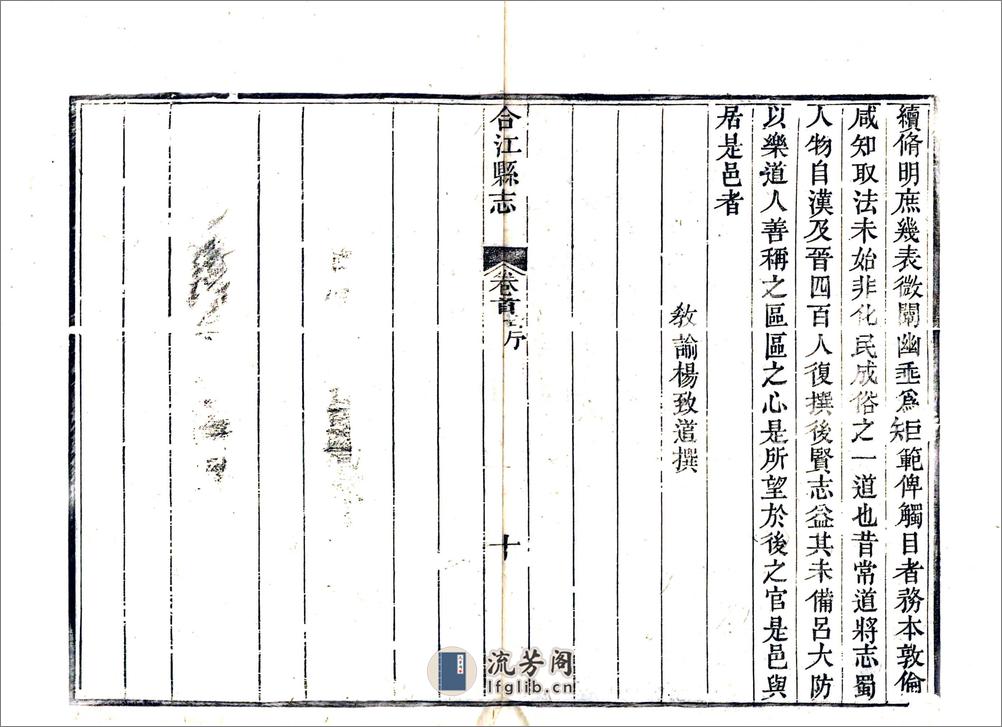 續脩明庶幾表微闡幽垂爲矩範俾觸目者務本敦倫
咸知取法未始非化民成俗之一道也昔常道將志蜀
人物自漢及晉四百人復撰後賢志益其未備呂大防
以樂道人善稱之區區之心是所望於後之官是邑與
居是邑者
教諭楊致道撰
合江縣志
卷首
十
流芳阁
lfglib.cn